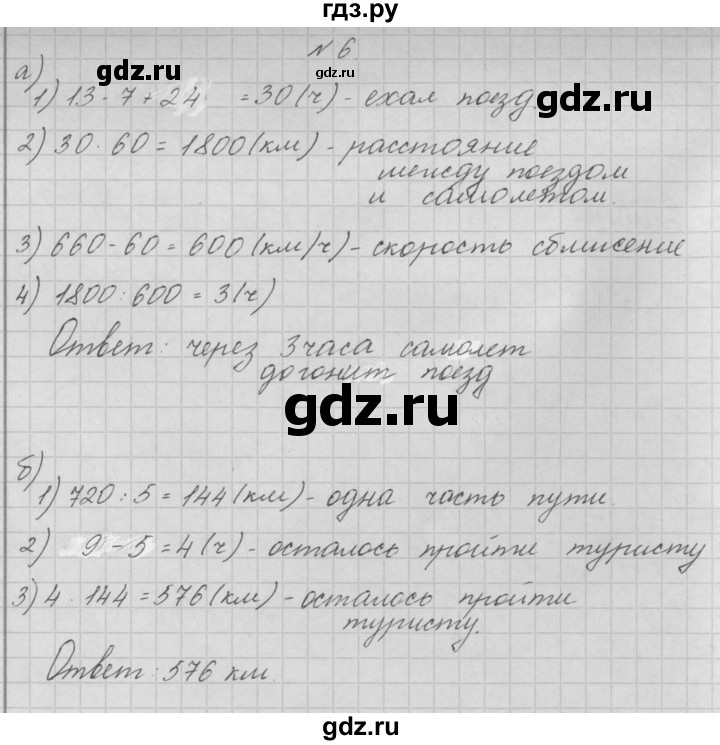 гдз.ру
№ 6.
а)
gdz.ru
gdz.ru
1) 13 - 7 + 24 = 30 (ч) - ехал поезд.
gdz.ru
2) 30 · 60 = 1800 (км) - расстояние
между поездом
и самолетом.
3) 660 - 60 = 600 (км/ч) - скорость сближение
4) 1800 : 600 = 3 (ч)
Ответ: через 3 часа самолет
догонит поезд
gdz.ru
б)
1) 720 : 5 = 144 (км) - одна часть пути.
2) 9 - 5 = 4 (ч) - осталось пройти туристу
3) 4 · 144 = 576 (км) - осталось пройти
туристу.
Ответ: 576 км.
gdz.ru